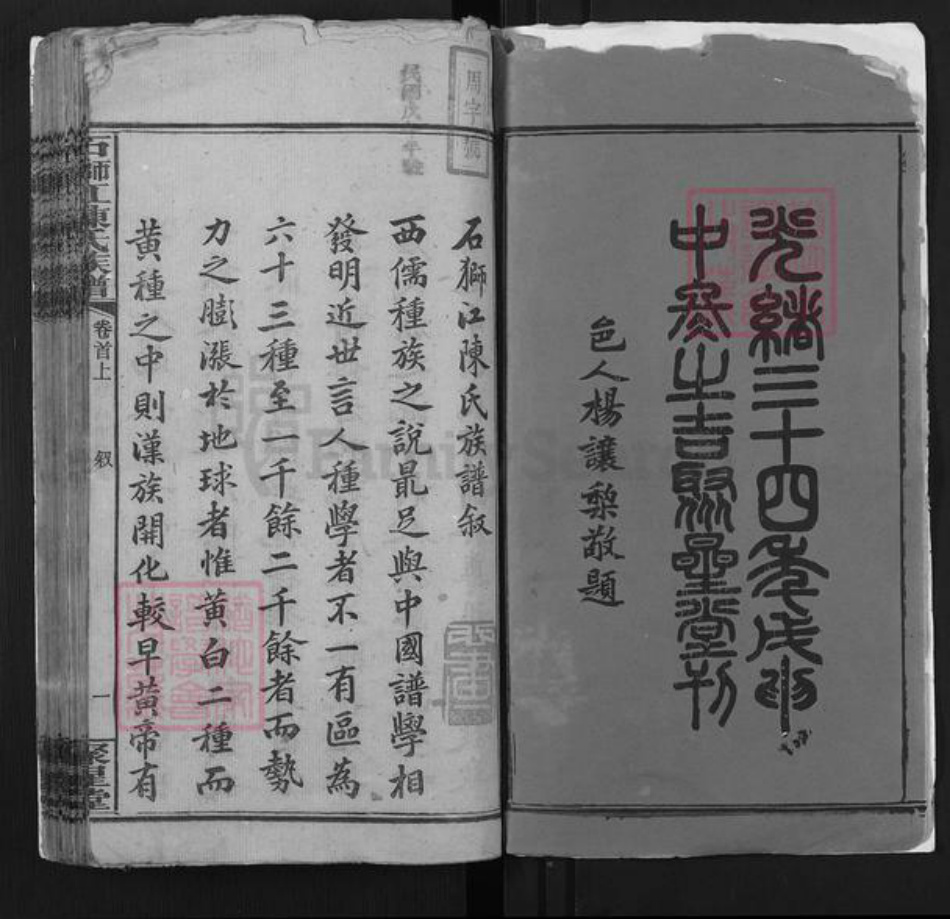 光緒三十四年戊申
中秋之吉聚星堂刊
邑人楊讓梨敬題
周字號
石獅江陳氏族譜敘
西儒種族之說最足與中國譜學相
發明近世言人種學者不一有區為
六十三種至一千餘二千餘者而勢
力之膨漲於地球者惟黃白二種而
黃種之中則漢族開化較早黃帝有
石獅江陳氏族譜
卷首上
敘
一
聚星堂
FamilySearch